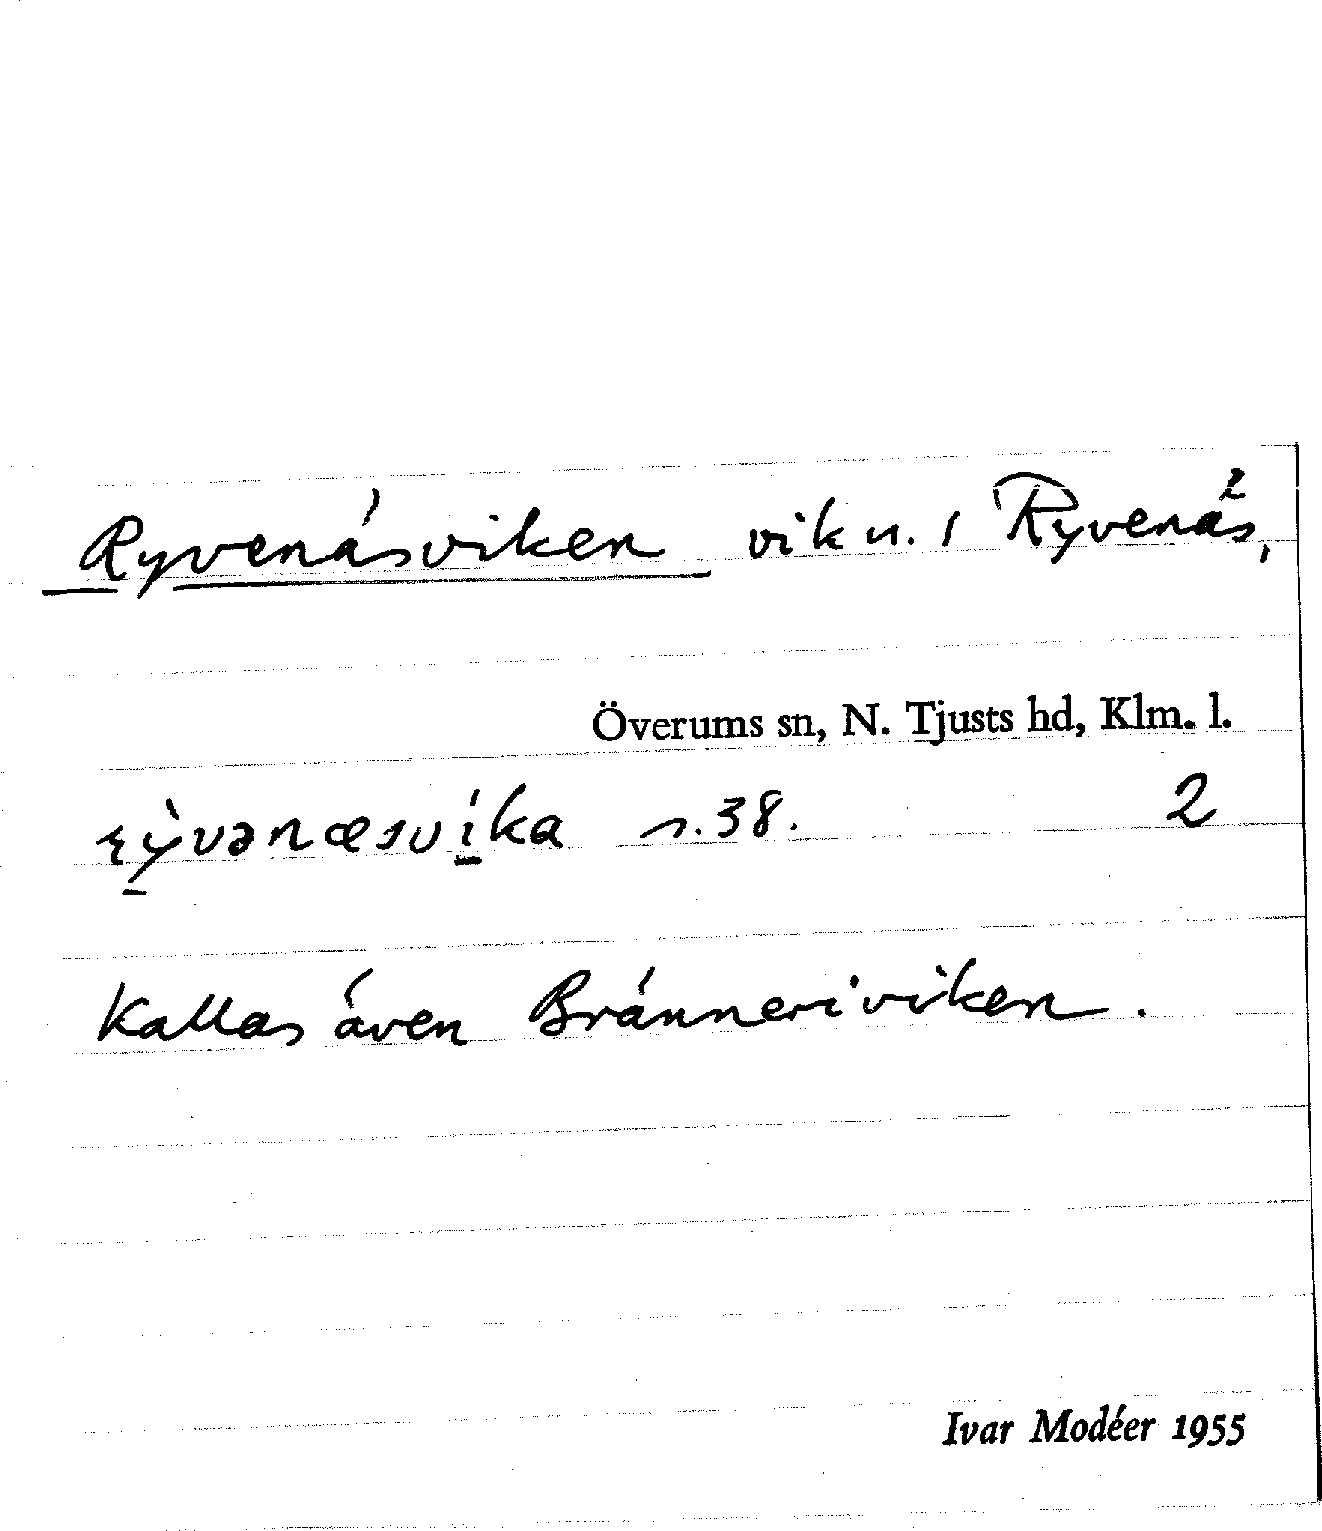 Ryvenäsviken vik n. 1 Ryvenäs,
Överums sn, N. Tjusts hd, Klm. l.
rỳvənæsvíka s. 38. 2
Kallas även Bränneriviken.
Ivar Modéer 1955